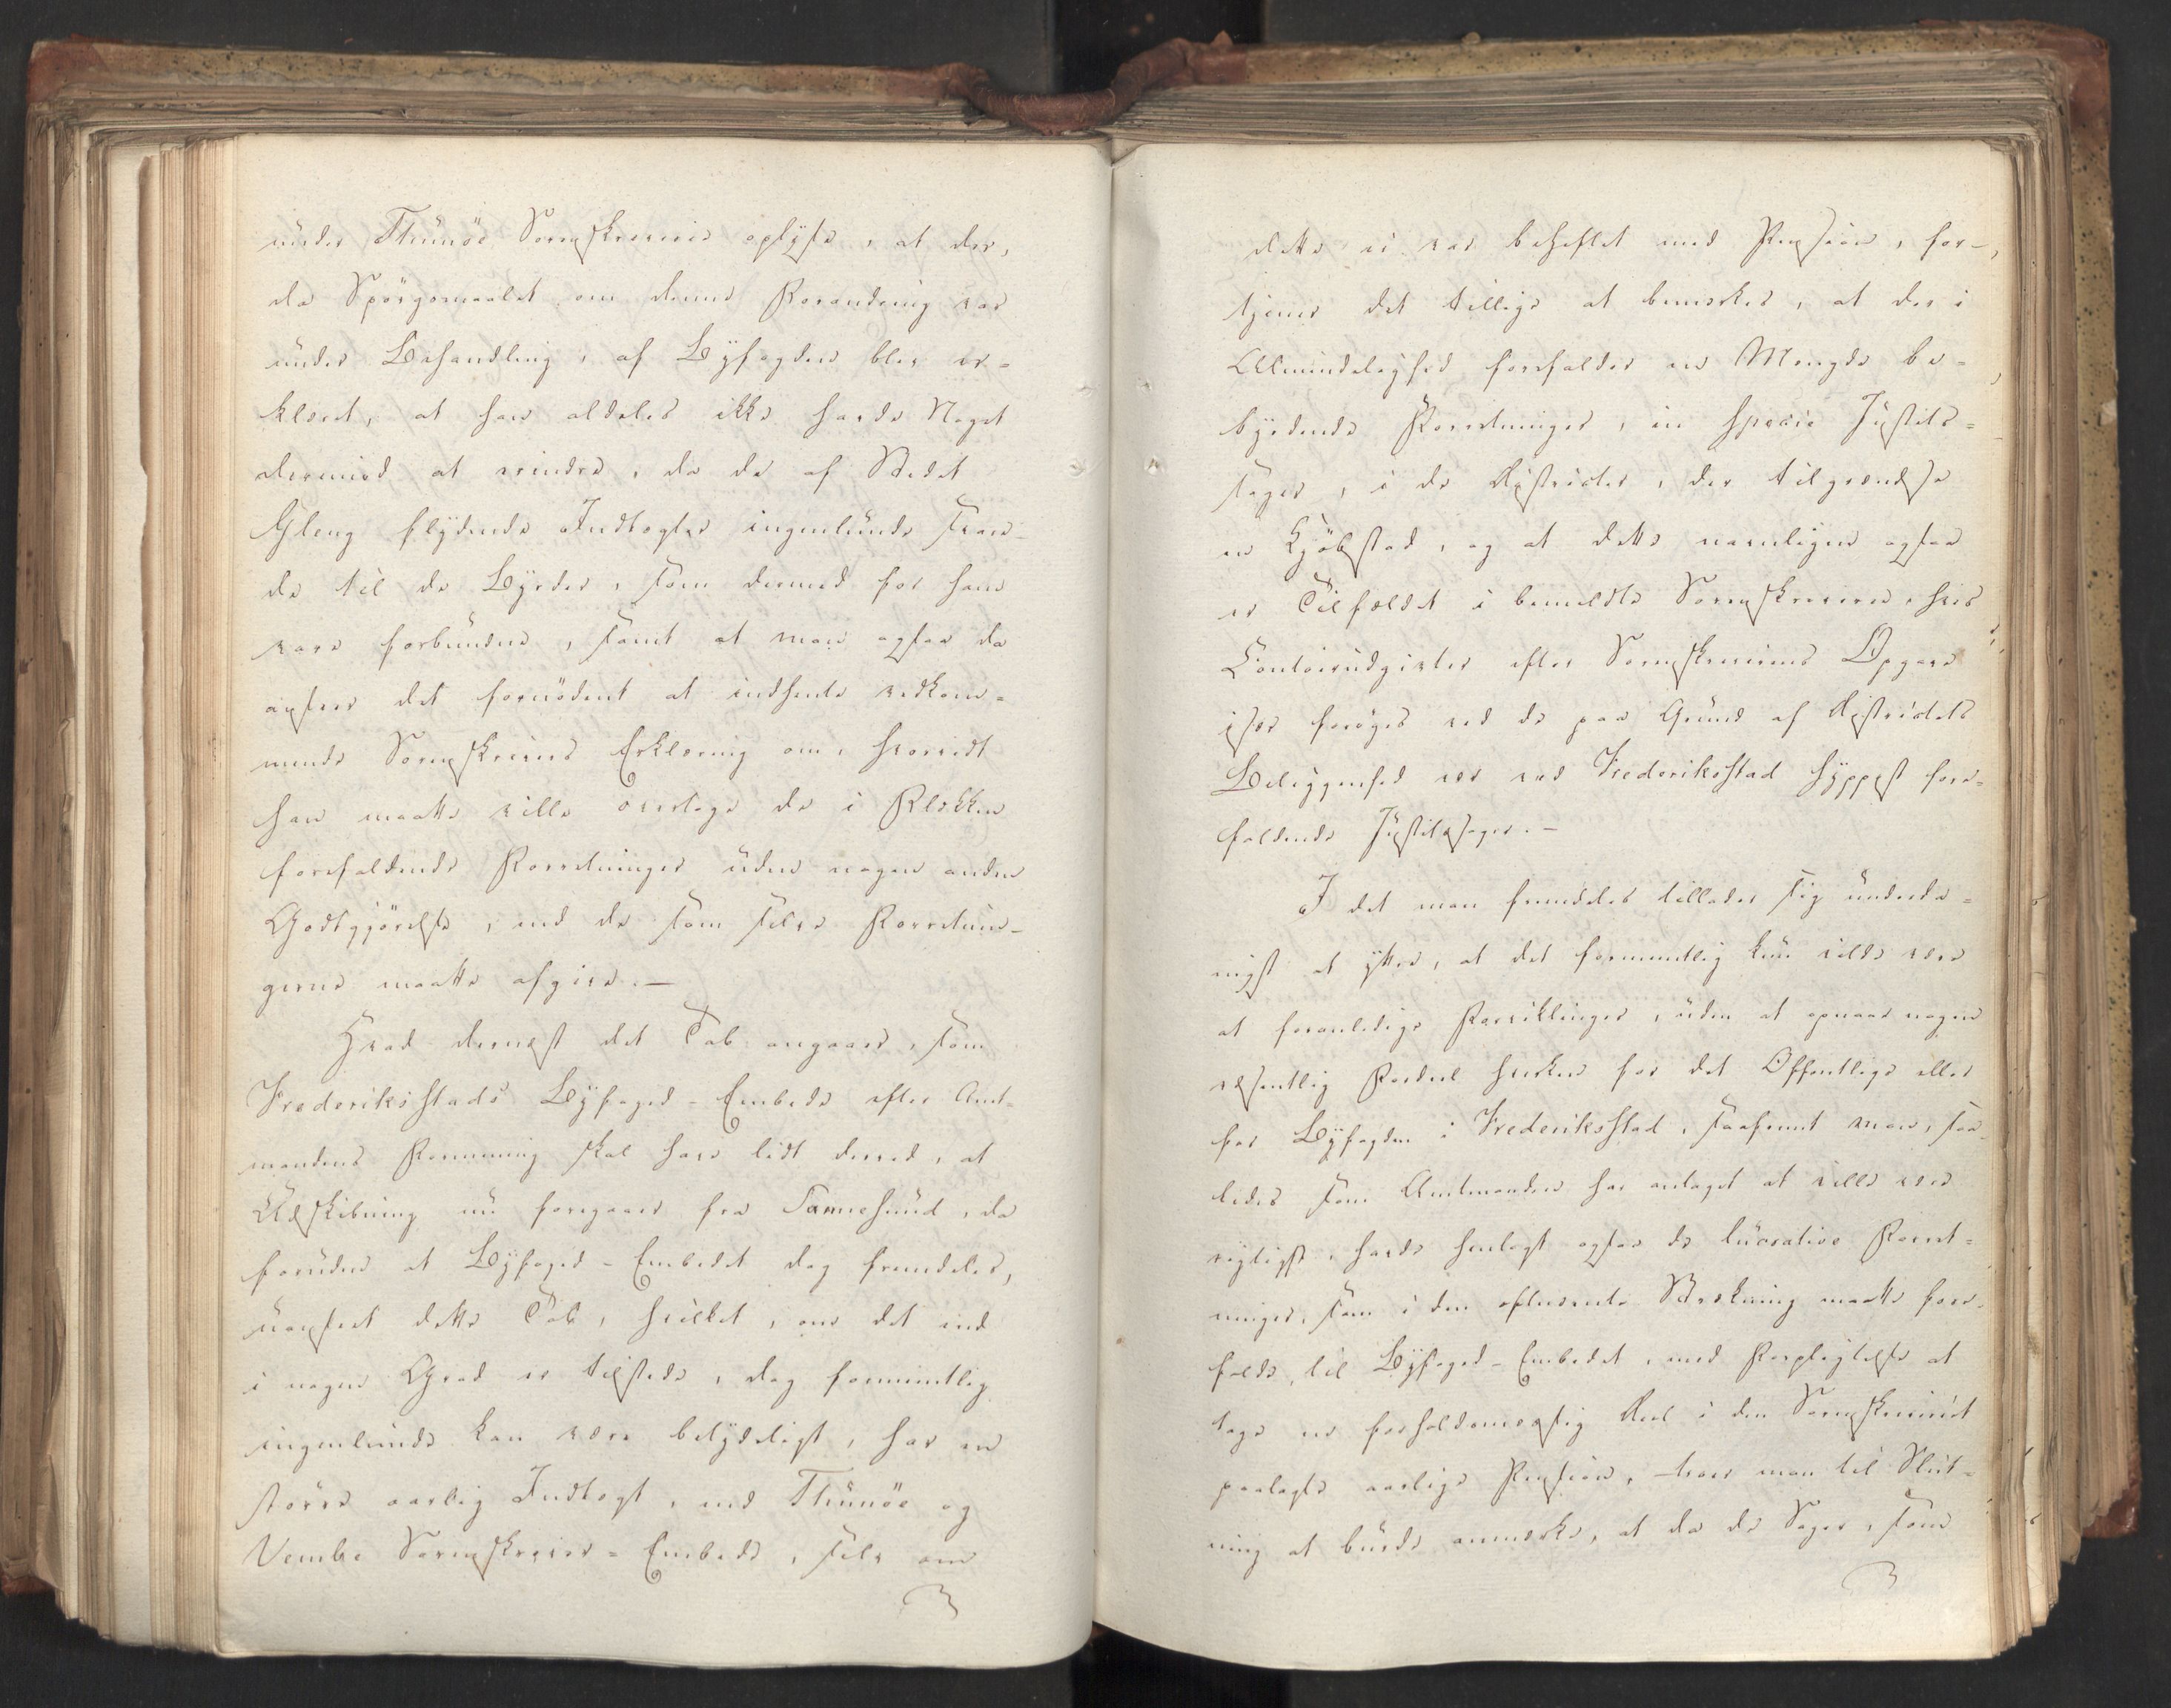 under Thunöe Sorenskriverie oplyste, at der,
da Spörgsmaalet om denne Forandring var
under Behandling, af Byfogden blev er-
klæret, at han aldeles ikke havde Noget
dermed at erindre, da de af Stedet
Gleng flydende Indtægter ingenlunde svare-
de til de Byrder, som dermed for ham
vare forbundne, samt at man ogsaa da
ansaae det fornödent at indhente vedkom-
mende Sorenskrivers Erklæring om, hvorvidt
han maatte ville overtage de i Flekken
forefaldende Forretninger uden nogen anden
Godtgjörelse, end de som selve Forretnin-
gerne maatte afgive. —
Hvad dernæst det Tab angaaer, som
Frederiksstads Byfoged-Embede efter Amt-
mandens Formening skal have lidt derved, at
Udskibning nu foregaaer fra Sannesund, da
foruden at Byfoged-Embedet dog fremdeles,
uanseet dette Tab, hvilket, om det end
i nogen Grad er tilstede, dog formeentlig
ingenlunde kan være betydeligt, har en
större aarlig Indtægt, end Thunöe og
Vembe Sorenskriver-Embede, selv om
dette ei var beheftet med Pension, for-
tjener det tillige at bemærkes, at der i
Almindelighed forefalder en Mengde be-
byrdende Forretninger, in specie Justits-
sager, i de Districter, der tilgrændse
en Kjöbstad, og at dette navnligen ogsaa
er Tilfældet i bemeldte Sorenskriverie, hvis
Contoirudgivter efter Sorenskriverens Opgave
især foröges ved de paa Grund af Districtets
Beliggenhed nær ved Frederiksstad hyppigst fore-
faldende Justitssager. —
I det man fremdeles tillader sig underda-
nigst at yttre, at det formeentlig kun vilde være
at foranledige Forviklinger, uden at opnaae nogen
væsentlig Fordeel hverken for det Offentlige eller
for Byfogden i Frederiksstad, saafremt man, saa-
ledes som Amtmanden har antaget at ville være
rigtigst, havde henlagt ogsaa de lucrative Forret-
ninger, som i den oftnævnte Strækning maatte fore-
falde, til Byfoged-Embedet, med Forpligtelse at
tage en forholdsmæssig Deel i den Sorenskriveriet
paalagte aarlige Pension, troer man til Slut-
ning at burde anmærke, at da de Sager, som